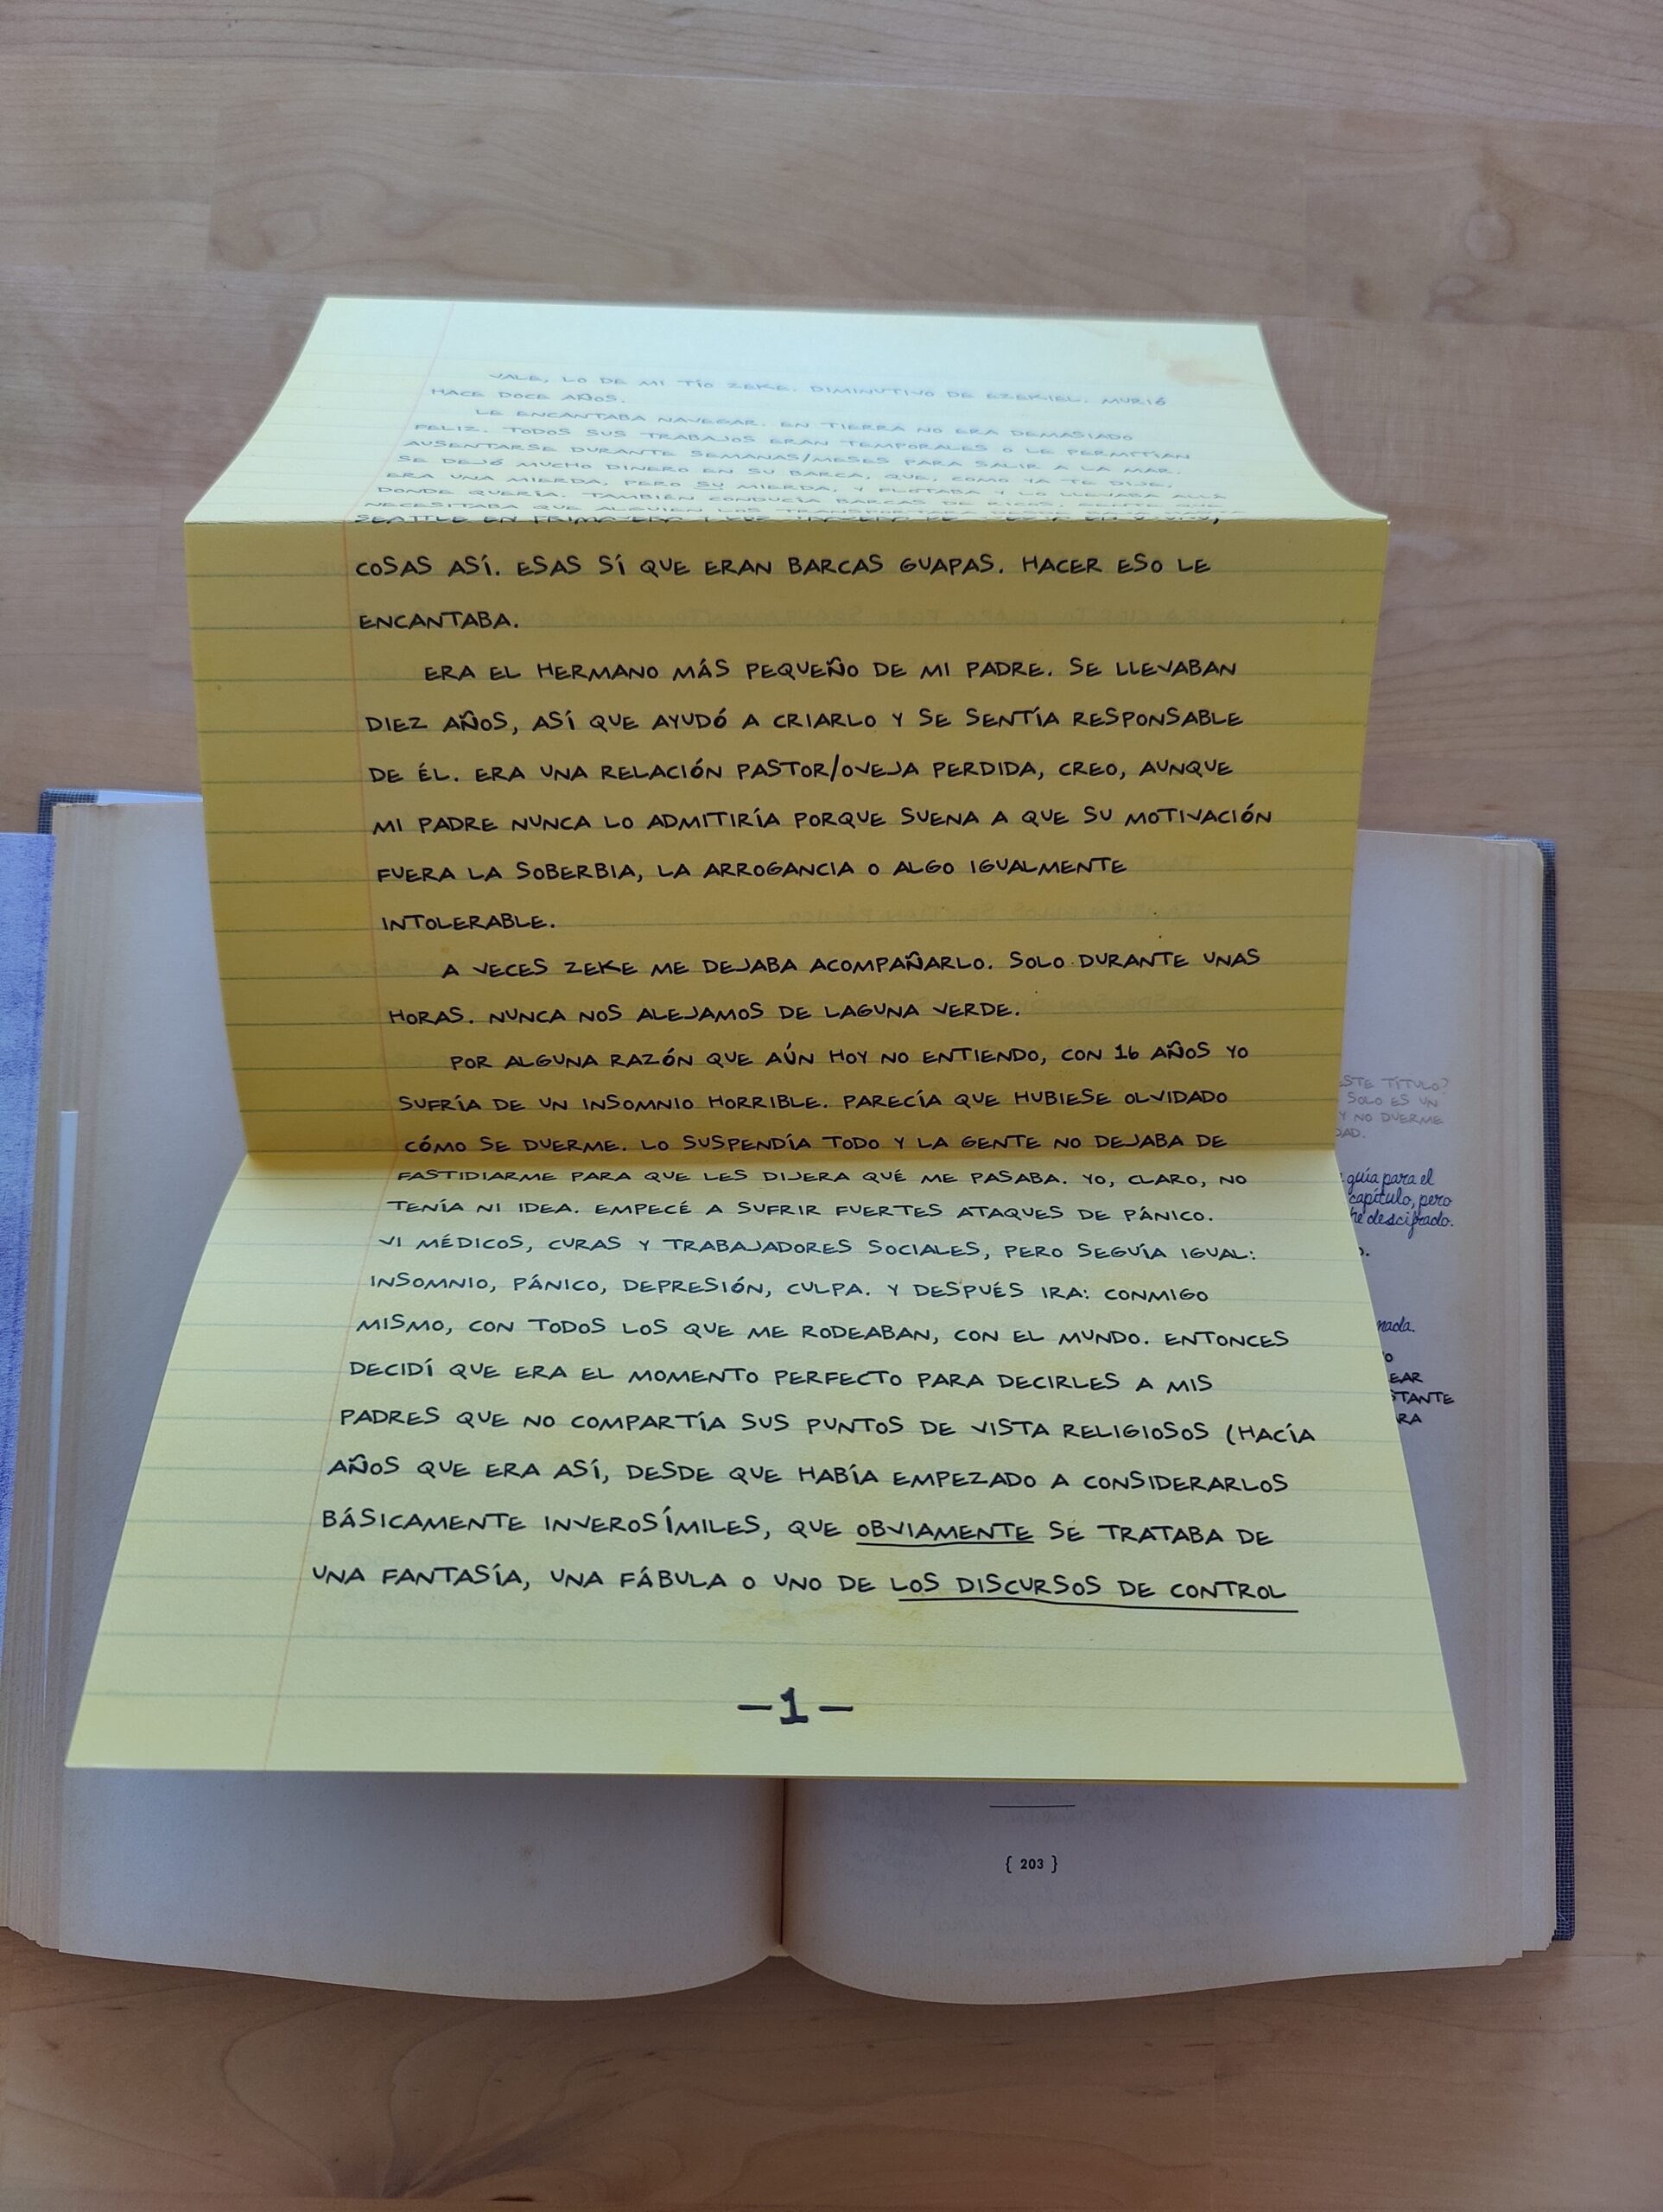 VALE, LO DE MI TÍO ZEKE. DIMINUTIVO DE EZEKIEL. MURIÓ
HACE DOCE AÑOS.
LE ENCANTABA NAVEGAR. EN TIERRA NO ERA DEMASIADO
FELIZ. TODOS SUS TRABAJOS ERAN TEMPORALES O LE PERMITÍAN
AUSENTARSE DURANTE SEMANAS/MESES PARA SALIR A LA MAR.
SE DEJÓ MUCHO DINERO EN SU BARCA, QUE, COMO YA TE DIJE,
ERA UNA MIERDA, PERO SU MIERDA, Y FLOTABA Y LO LLEVABA ALLÁ
DONDE QUERÍA. TAMBIÉN CONDUCÍA BARCAS DE RICOS, GENTE QUE
NECESITABA QUE ALGUIEN LOS TRANSPORTARA DESDE BAJA HASTA
SEATTLE EN PRIMAVERA Y
COSAS ASÍ. ESAS SÍ QUE ERAN BARCAS GUAPAS. HACER ESO LE
ENCANTABA.
ERA EL HERMANO MÁS PEQUEÑO DE MI PADRE. SE LLEVABAN
DIEZ AÑOS, ASÍ QUE AYUDÓ A CRIARLO Y SE SENTÍA RESPONSABLE
DE ÉL. ERA UNA RELACIÓN PASTOR/OVEJA PERDIDA, CREO, AUNQUE
MI PADRE NUNCA LO ADMITIRÍA PORQUE SUENA A QUE SU MOTIVACIÓN
FUERA LA SOBERBIA, LA ARROGANCIA O ALGO IGUALMENTE
INTOLERABLE.
A VECES ZEKE ME DEJABA ACOMPAÑARLO. SOLO DURANTE UNAS
HORAS. NUNCA NOS ALEJAMOS DE LAGUNA VERDE.
POR ALGUNA RAZÓN QUE AÚN HOY NO ENTIENDO, CON 16 AÑOS YO
SUFRÍA DE UN INSOMNIO HORRIBLE. PARECÍA QUE HUBIESE OLVIDADO
CÓMO SE DUERME. LO SUSPENDÍA TODO Y LA GENTE NO DEJABA DE
FASTIDIARME PARA QUE LES DIJERA QUÉ ME PASABA. YO, CLARO, NO
TENÍA NI IDEA. EMPECÉ A SUFRIR FUERTES ATAQUES DE PÁNICO.
VI MÉDICOS, CURAS Y TRABAJADORES SOCIALES, PERO SEGUÍA IGUAL:
INSOMNIO, PÁNICO, DEPRESIÓN, CULPA. Y DESPUÉS IRA: CONMIGO
MISMO, CON TODOS LOS QUE ME RODEABAN, CON EL MUNDO. ENTONCES
DECIDÍ QUE ERA EL MOMENTO PERFECTO PARA DECIRLES A MIS
PADRES QUE NO COMPARTÍA SUS PUNTOS DE VISTA RELIGIOSOS (HACÍA
AÑOS QUE ERA ASÍ, DESDE QUE HABÍA EMPEZADO A CONSIDERARLOS
BÁSICAMENTE INVEROSÍMILES, QUE OBVIAMENTE SE TRATABA DE
UNA FANTASÍA, UNA FÁBULA O UNO DE LOS DISCURSOS DE CONTROL
—1—
TÍTULO?
SOLO ES UN
Y NO DUERME
guía para el
capítulo, pero
he descifrado.
{ 203 }